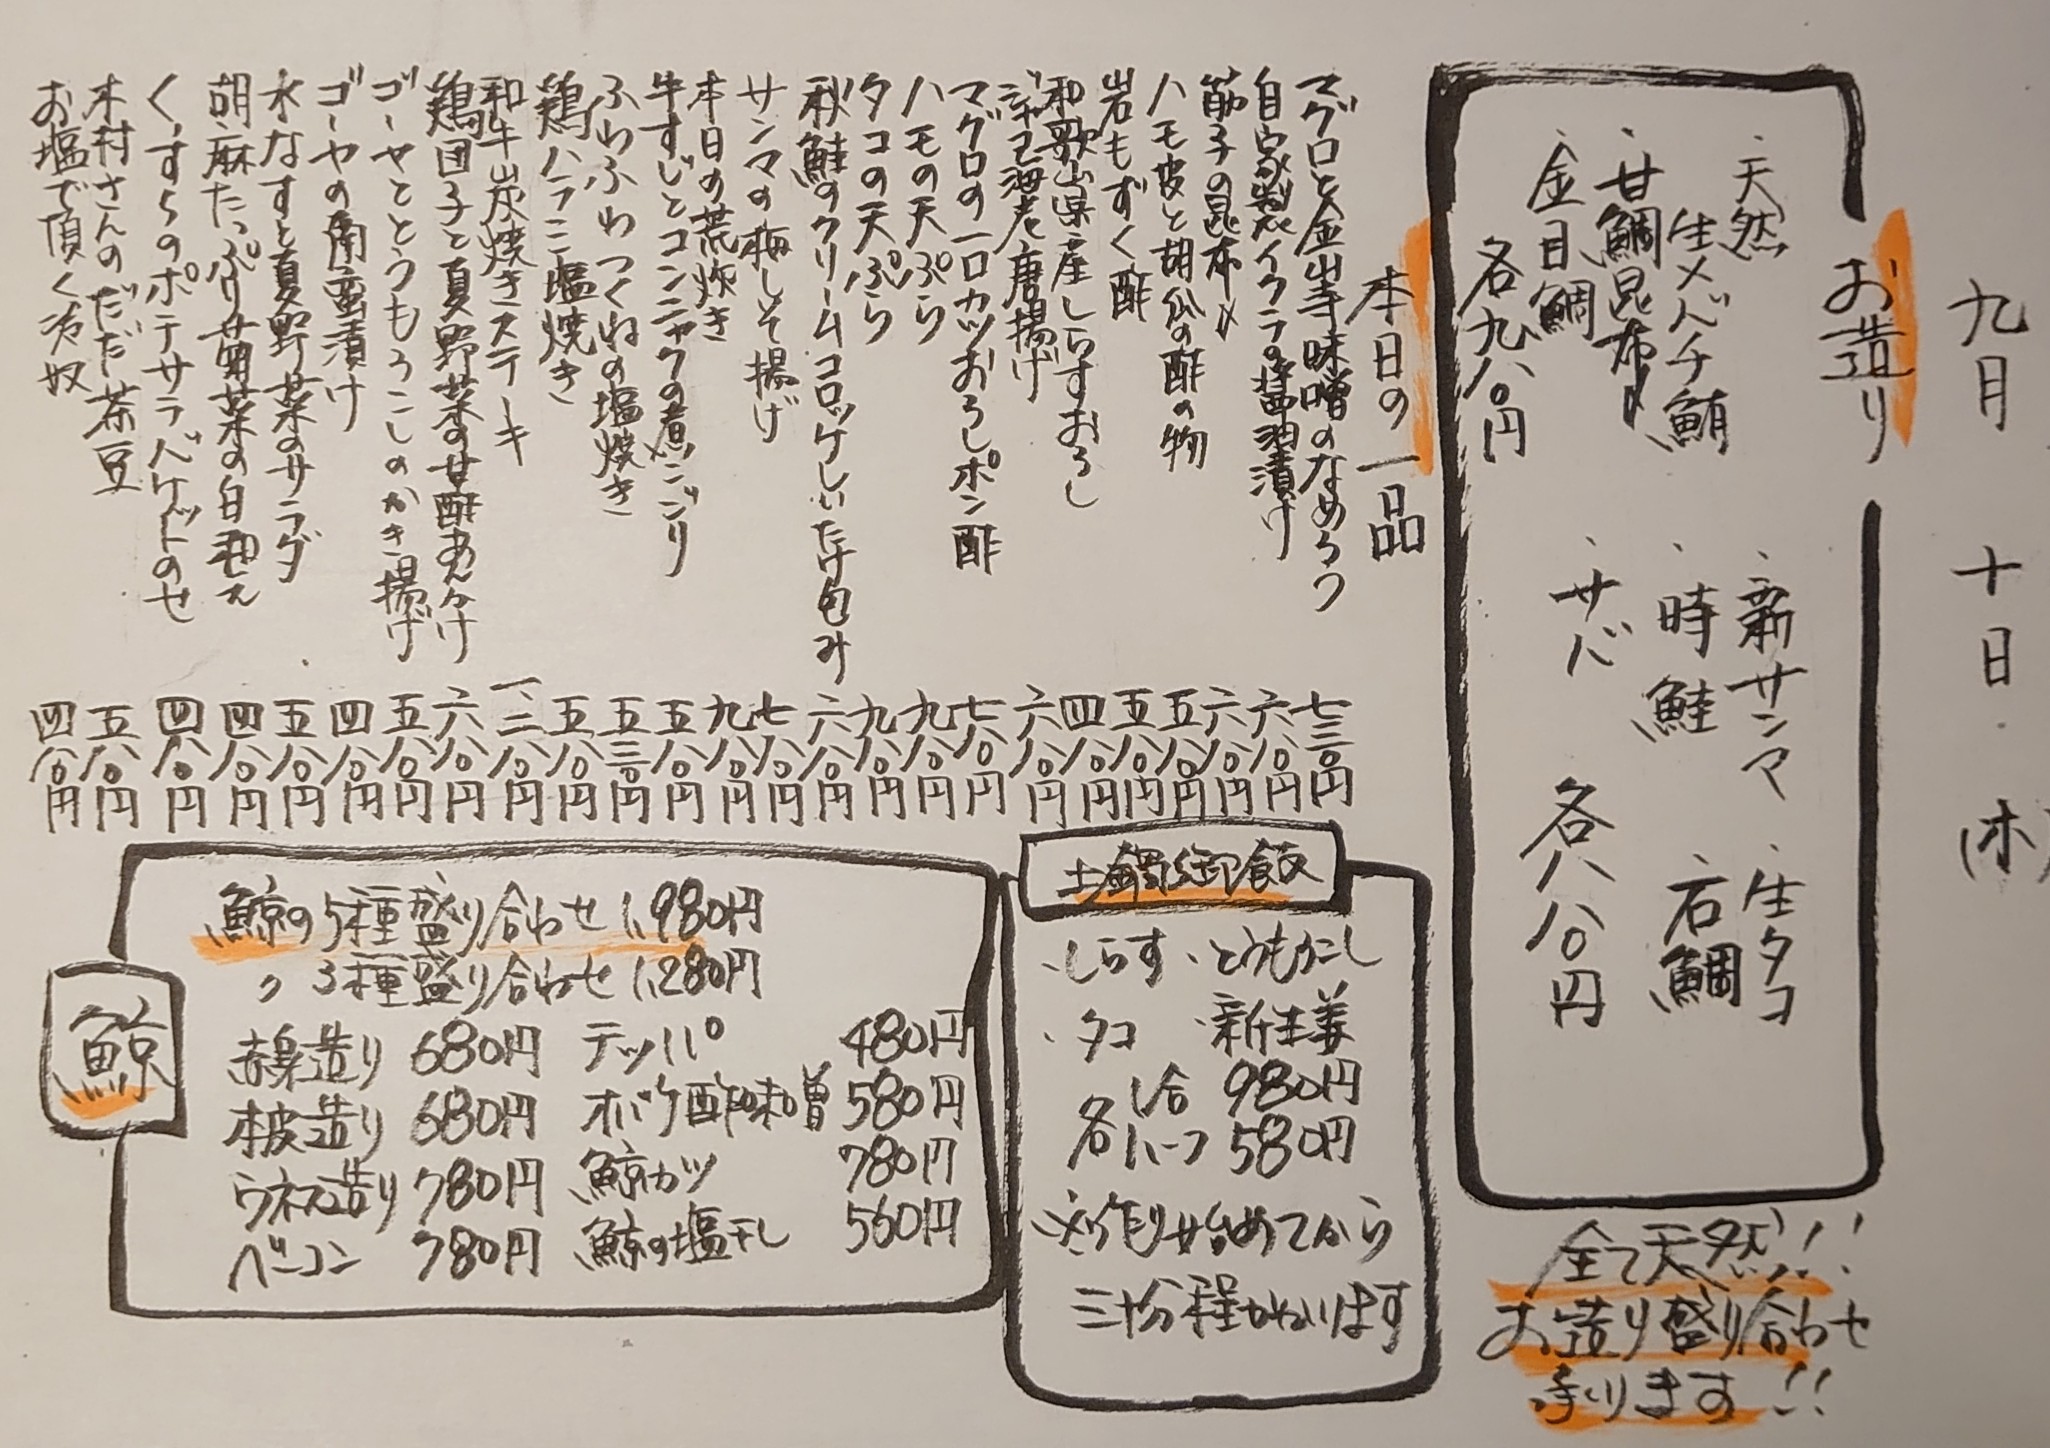 九月十日(木)
お造り
天然
・生メバチ鮪
・甘鯛昆布〆
・金目鯛
各九八〇円
・新サンマ
・生タコ
・時鮭
・石鯛
・サバ
各八八〇円
全て天然!!
お造り盛り合わせ
承ります!!
本日の一品
マグロと金山寺味噌のなめろう 七三〇円
自家製イクラの醤油漬け 六八〇円
筋子の昆布〆 六八〇円
ハモ皮と胡瓜の酢の物 五八〇円
岩もずく酢 五八〇円
和歌山県産しらすおろし 四八〇円
ジャコ海老唐揚げ 六八〇円
マグロの一口カツおろしポン酢 七八〇円
ハモの天ぷら 九八〇円
タコの天ぷら 九八〇円
秋鮭のクリームコロッケしいたけ包み 六八〇円
サンマの梅しそ揚げ 七八〇円
本日の荒炊き 九八〇円
牛すじとコンニャクの煮込ジリ 五八〇円
ふわふわつくねの塩焼き 五三〇円
鶏ハラミ塩焼き 五八〇円
和牛炭焼きステーキ 一、二八〇円
鶏団子と夏野菜の甘酢あんかけ 六八〇円
ゴーヤととうもろこしのかき揚げ 五八〇円
ゴーヤの南蛮漬け 四八〇円
水なすと夏野菜のサラダ 五八〇円
胡麻たっぷり菊菜の白和え 四八〇円
くずらのポテサラバケットのせ 四八〇円
木村さんのだだ茶豆 五八〇円
お塩で頂く冷奴 四八〇円
土鍋御飯
・しらす ・とうもろこし
・タコ ・新生姜
各 一合 980円
ハーフ 580円
※作り始めてから
三十分程かかります
鯨
鯨の5種盛り合わせ 1,980円
〃 3種盛り合わせ 1,280円
赤身造り 680円
本皮造り 680円
ウネス造り 780円
ベーコン 780円
テッパ 480円
オバケ酢味噌 580円
鯨カツ 780円
鯨の塩干し 560円